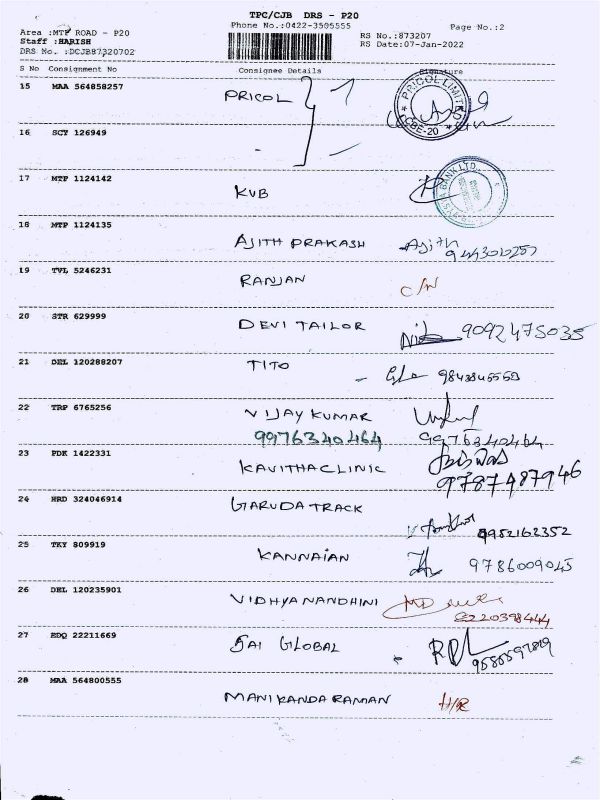 TPC/CJB DRS - P20
Phone No.:0422-3505555
Page No.:2
Area :MTP ROAD - P20
Staff :HARISH
DRS No. :DCJB87320702
RS No.:873207
RS Date:07-Jan-2022
S No Consignment No Consignee Details Signature
15 MAA 564858257 PRICOL
PRICOL LIMITED
CBE-20
16 SCT 126949
17 MTP 1124142 KVB
BANK LTD.
18 MTP 1124135 AJITH PRAKASH Ajith
19 TVL 5246231 RANJAN C/N
20 STR 629999 DEVI TAILOR 9092475035
21 DEL 120288207 TITO
22 TRP 6765256 VIJAY KUMAR
9976340464 9976340464
23 PDK 1422331 KAVITHA CLINIC
9787487946
24 HRD 324046914 GARUDA TRACK
9952162352
25 TKY 809919 KANNAIAN 9786009045
26 DEL 120235901 VIDHYANANDHINI
8220398444
27 EDQ 22211669 SAI GLOBAL
28 MAA 564800555 MANIKANDA RAMAN H/R